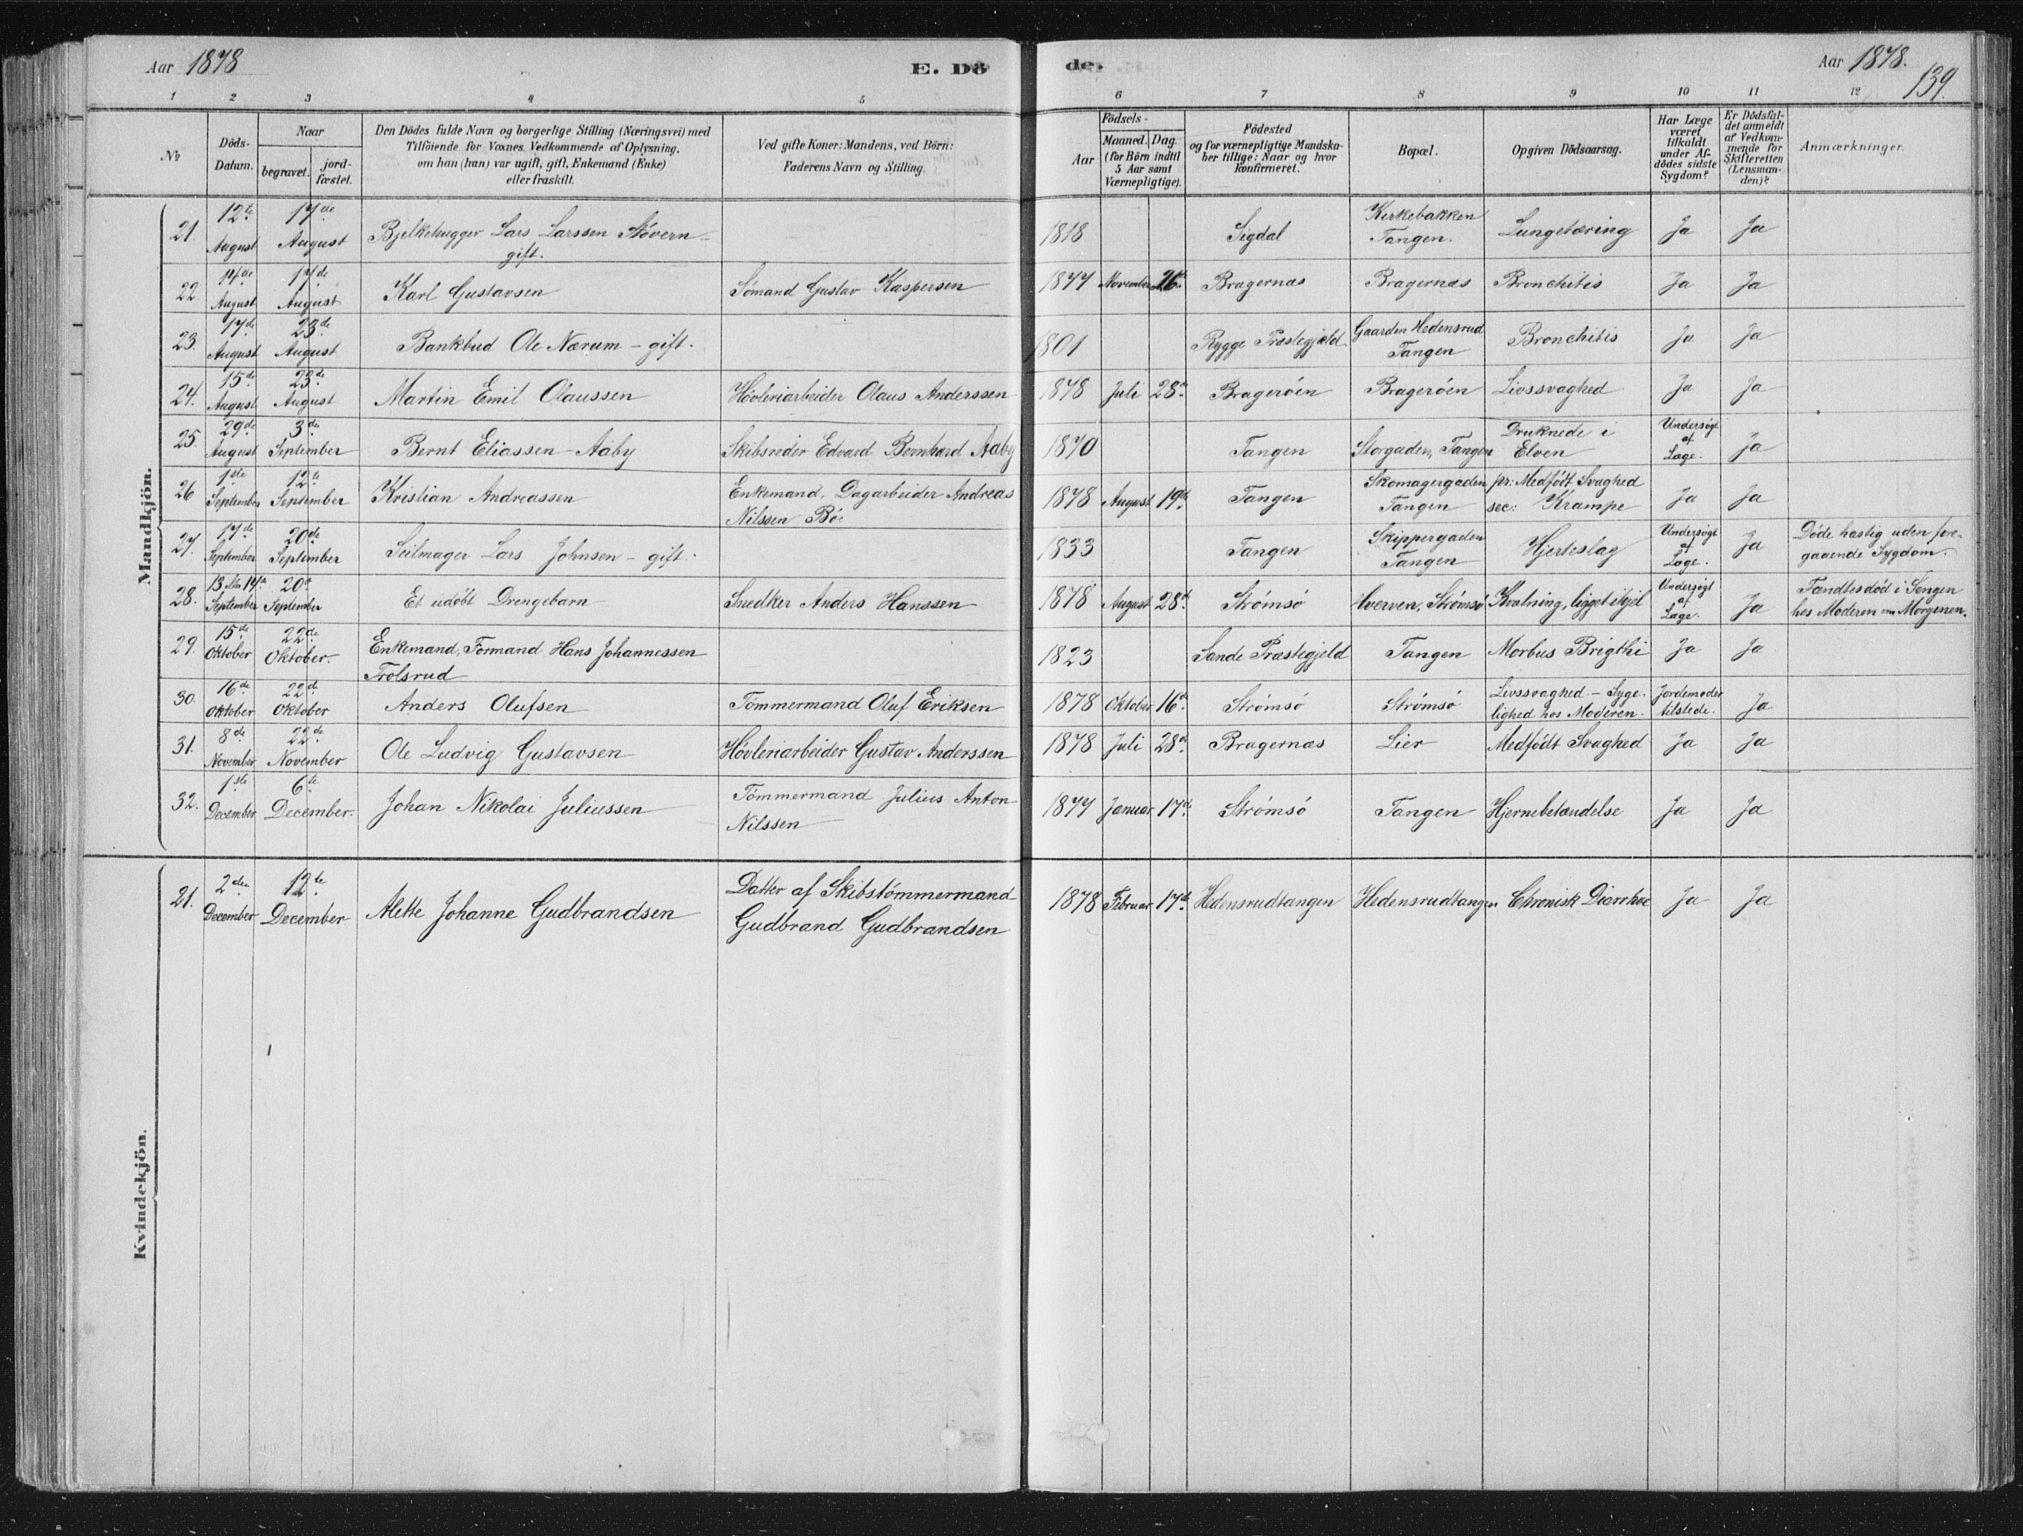 Aar 1878 E. Dö de. Aar 1878.
139.
1 2 3 4 5 6 7 8 9 10 11 12
No Döds-Datum. Naar begravet. jord-fæstet. Den Dödes fulde Navn og borgerlige Stilling (Næringsvei) med Tilföiende for Voxnes Vedkommende af Oplysning, om han (hun) var ugift, gift, Enkemand (Enke) eller fraskilt. Ved gifte Koner: Mandens, ved Börn: Faderens Navn og Stilling. Födsels- Aar Maaned. Dag. (for Börn indtil 5 Aar samt Værnepligtige). Födested og for værnepligtige Mandskaber tillige: Naar og hvor konfirmeret. Bopæl. Opgiven Dödsaarsag. Har Læge været tilkaldt under Afdödes sidste Sygdom? Er Dödsfaldet anmeldt af Vedkommende for Skifteretten (Lensmanden)? Anmærkninger.
Mandkjön.
21. 12te August 17de August Bjelkehugger Lars Larssen Støvern - gift. 1818 Sigdal Kirkebakken Tangen. Lungetæring Ja Ja
22. 14de August 17de August Karl Gustavsen Sömand Gustav Kaspersen 1877 November 26de Bragernæs Bragernæs Bronchitis Ja Ja
23. 17de August 23de August Bankbud Ole Nærum - gift. 1801 Rygge Præstegjeld Gaarden Hedensrud Tangen Bronchitis Ja Ja
24. 15de August 23de August Martin Emil Olaussen Hövleriarbeider Olaus Anderssen 1878 Juli 28de Bragerøen Bragerøen Livssvaghed Ja Ja
25. 29de August 3die September Bernt Eliassen Aaby Skibsreder Edvard Bernhard Aaby 1870 Tangen Storgaden, Tangen Druknede i Elven Undersøgt af Læge. Ja
26 1ste September 12te September Kristian Andreassen Enkemand, Dagarbeider Andreas Nilssen Bö 1878 August 19de Tangen Skomagergaden Tangen pr: Medfödt Svaghed sec: Krampe Ja Ja
27. 17de September 20de September Seilmager Lars Johnsen - gift. 1833 Tangen Skippergaden Tangen Hjerteslag Undersøgt af Læge. Ja Döde hastig uden foregaaende Sygdom.
28. 13de-14de September 20de September Et udöbt Drengebarn Snedker Anders Hanssen 1878 August 28de Strømsø Hverven, Strømsø Kvælning, ligget ihjel Undersøgt af Læge. Ja Fandtes död i Sengen hos Moderen om Morgenen.
29. 15de Oktober 22de Oktober. Enkemand, Formand Hans Johannessen Trolsrud 1823 Sande Præstegjeld Tangen Morbus Brigthi Ja Ja
30. 16de Oktober 22de Oktober Anders Olufsen Tömmermand Oluf Eriksen 1878 Oktober 16de Strømsø Strømsø Livssvaghed - Sygelighed hos Moderen. Jordemoder tilstede. Ja
31. 8de November 22de November Ole Ludvig Gustavsen Hövleriarbeider Gustav Anderssen 1878 Juli 28de Bragernæs Lier Medfödt Svaghed Ja Ja
32. 1ste December 6te December. Johan Nikolai Juliussen Tömmermand Julius Anton Nilssen 1877 Januar 17de Strømsø Tangen Hjernebetændelse Ja Ja
Kvindekjön.
21. 2den December 12te December Alette Johanne Gudbrandsen Datter af Skibstömmermand Gudbrand Gudbrandsen 1878 Februar 17de Hedensrudtangen Hedensrudtangen Chronisk Diarrhoe Ja Ja